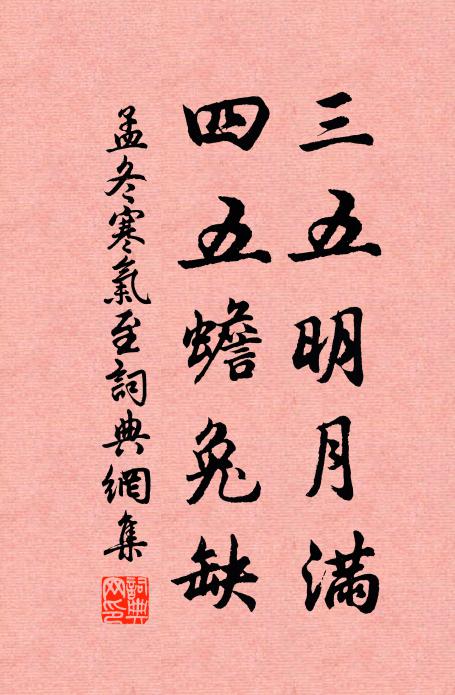 三五明月满
四五蟾兔缺
孟冬寒氣至詞典網集
詞典網印